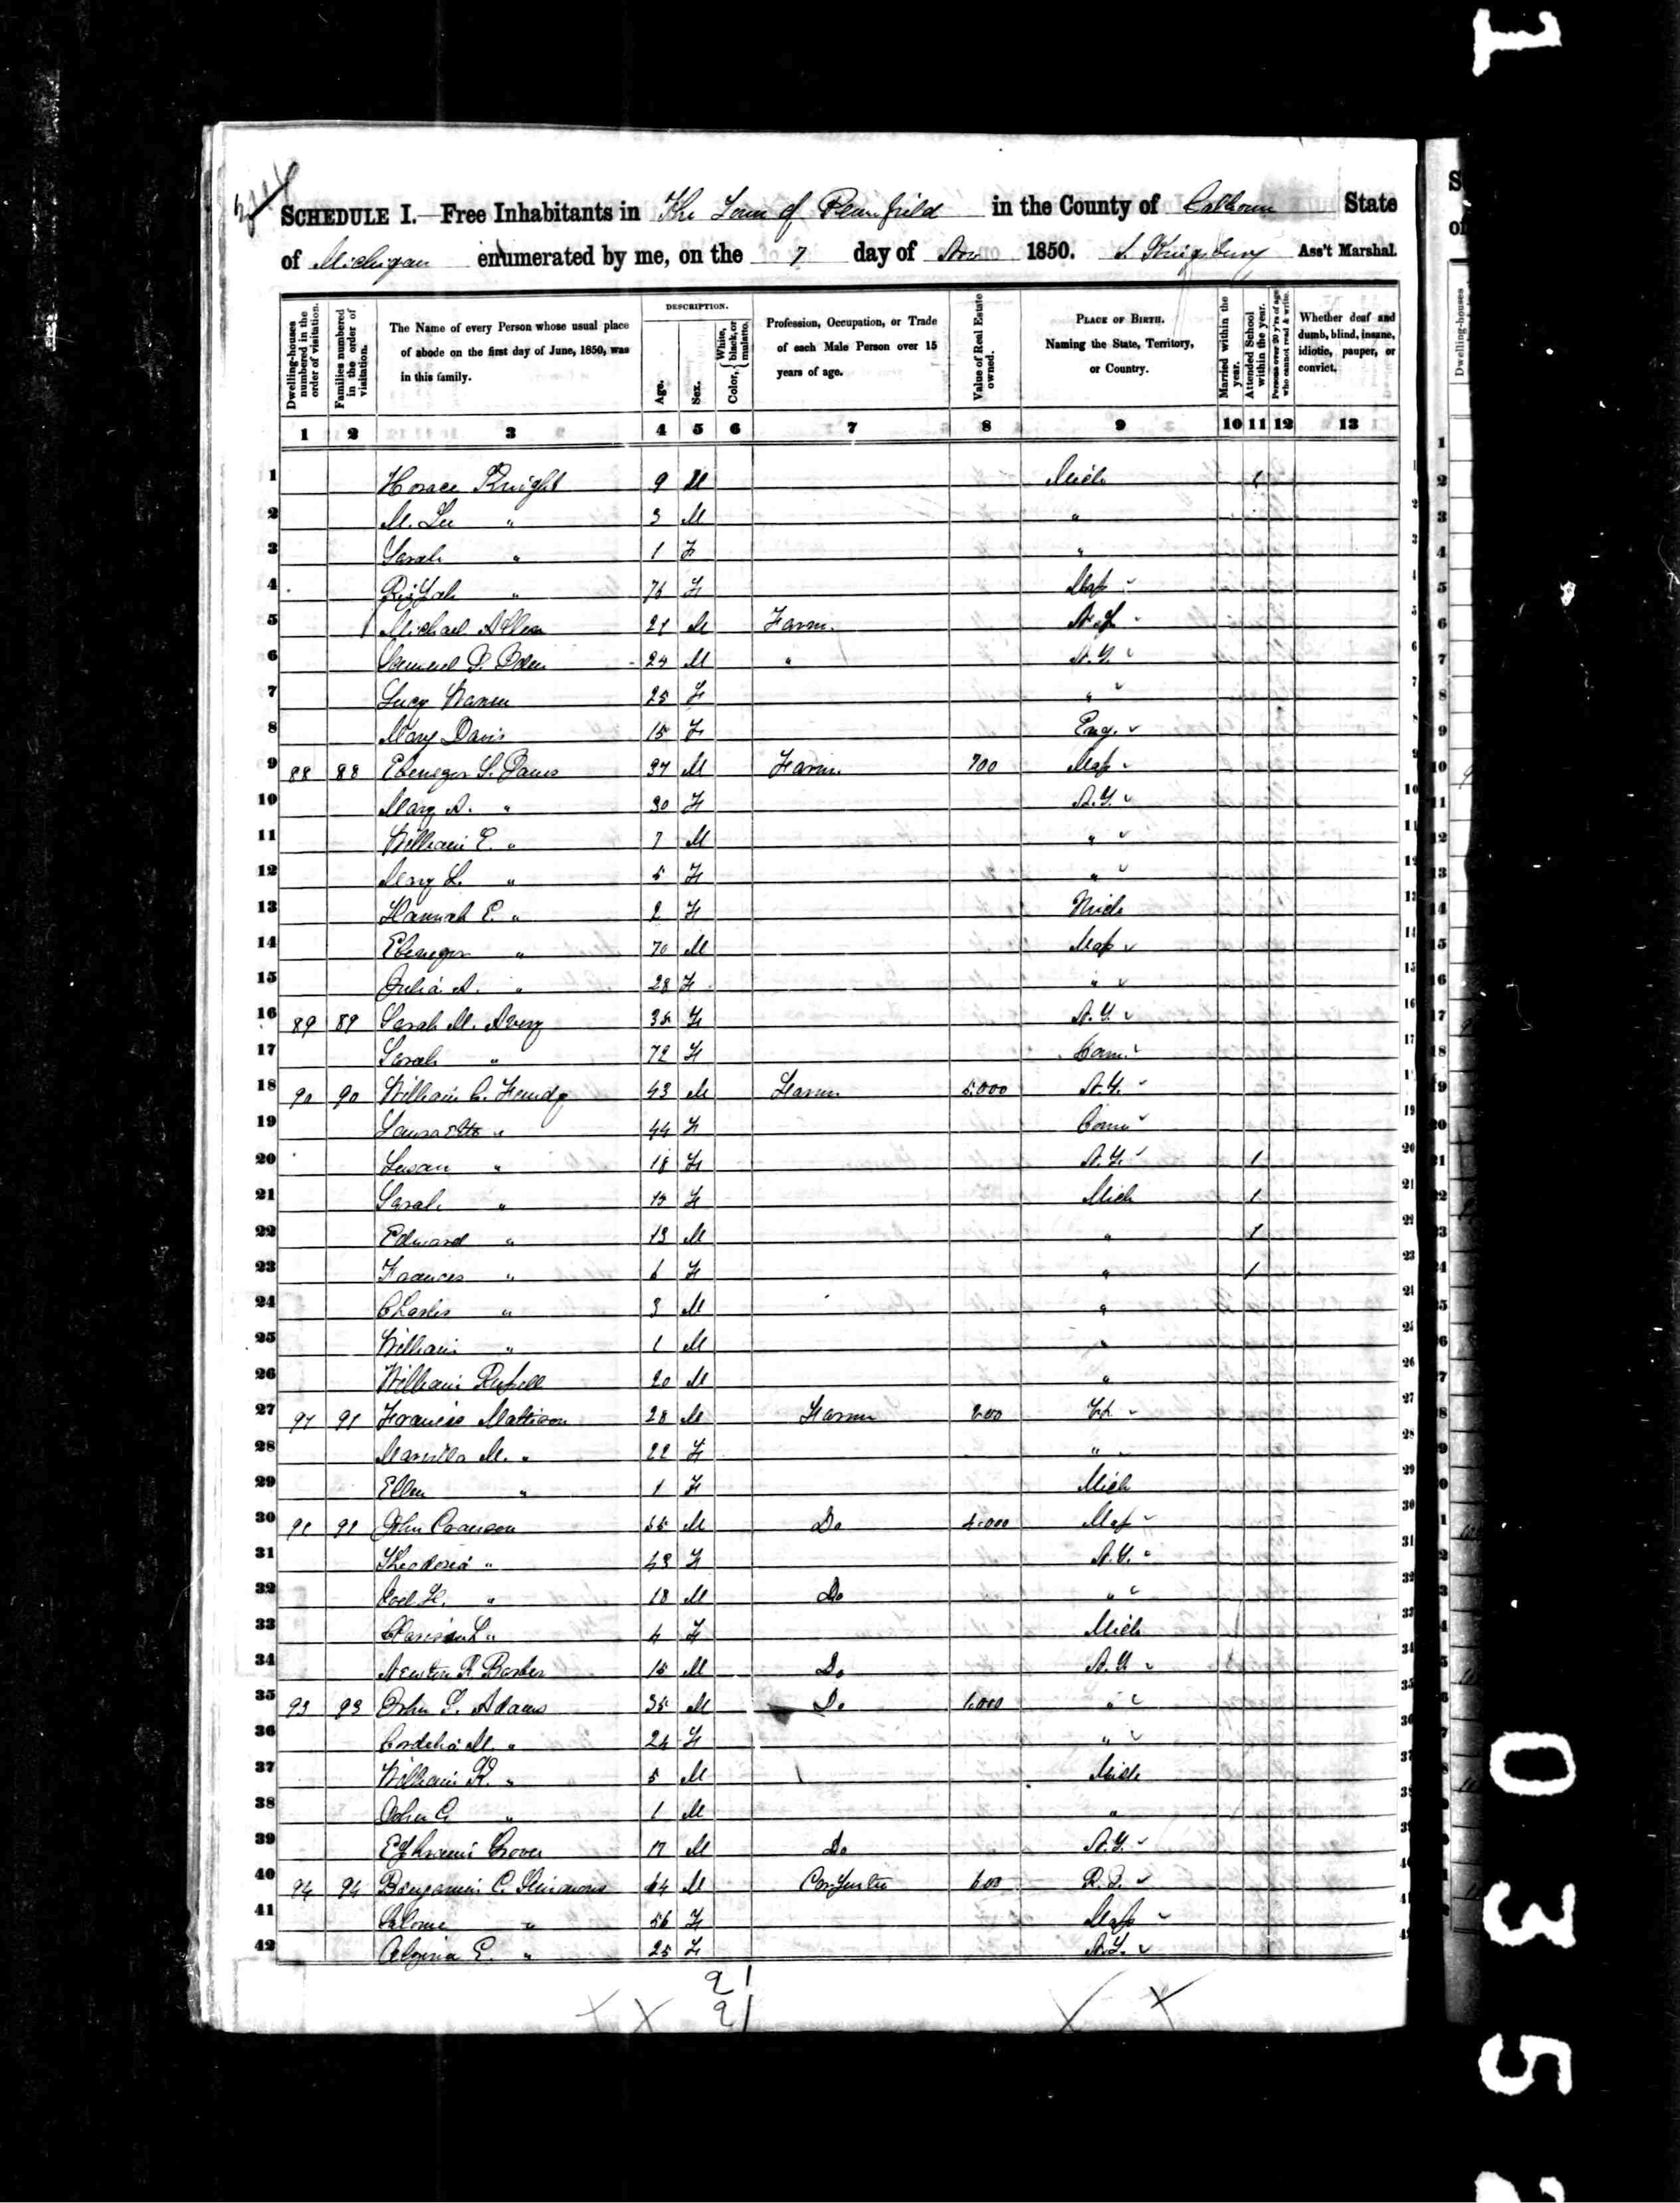 SCHEDULE I.—Free Inhabitants in The Town of Pennfield in the County of Calhoun State
of Michigan enumerated by me, on the 7 day of Nov 1850. S. Kingsbury Ass't Marshal.
Dwelling-houses numbered in the order of visitation.
Families numbered in the order of visitation.
The Name of every Person whose usual place of abode on the first day of June, 1850, was in this family.
DESCRIPTION.
Age.
Sex.
Color, White, black, or mulatto.
Profession, Occupation, or Trade of each Male Person over 15 years of age.
Value of Real Estate owned.
PLACE OF BIRTH. Naming the State, Territory, or Country.
Married within the year.
Attended School within the year.
Persons over 20 y'rs of age who cannot read & write.
Whether deaf and dumb, blind, insane, idiotic, pauper, or convict.
1 2 3 4 5 6 7 8 9 10 11 12 13
1 Horace Knight 9 M Mich 1
2 M. Lee " 3 M "
3 Sarah " 1 F "
4 Rizpah " 76 F Mass
5 Michael Allen 21 M Farm.
6 Samuel 24 M " N.Y.
7 Lucy Warren 25 F "
8 Mary Davis 15 F Eng.
9 88 88 Ebenezer S. 37 M Farm. 700 Mass
10 Mary A. " 30 F N.Y.
11 William E. " 7 M "
12 Mary L. " 5 F "
13 Hannah E. " 2 F Mich
14 Ebenezer " 70 M Mass
15 Julia A. " 28 F "
16 89 89 Sarah M. Avery 35 F N.Y.
17 Sarah " 72 F Conn.
18 90 90 William C. 43 M Farm 5.000 N.Y.
19 " 44 F Conn
20 Susan " 18 F N.Y. 1
21 Sarah " 15 F Mich 1
22 Edward " 13 M " 1
23 Frances " 6 F " 1
24 Charles " 3 M "
25 William " 1 M "
26 William Russell 20 M "
27 91 91 Francis Mattison 28 M Farm 200 Vt.
28 Marilla M. " 22 F "
29 Ellen " 1 F Mich
30 91 91 John Cranson 55 M Do 4.000 Mass
31 Theodosia " 43 F N.Y.
32 Joel H. " 18 M Do "
33 L " 4 F Mich
34 Newton R. 15 M Do N.Y.
35 93 93 John S. Adams 35 M Do 1.000 "
36 Cordelia M. " 24 F "
37 William R. " 5 M Mich
38 John C. " 1 M "
39 Ephraim Grover 17 M Do N.Y.
40 94 94 Benjamin C. Simmons 64 M Carpenter 600 R.I.
41 Salome " 56 F Mass
42 E. " 25 F N.Y.
21
21
0352